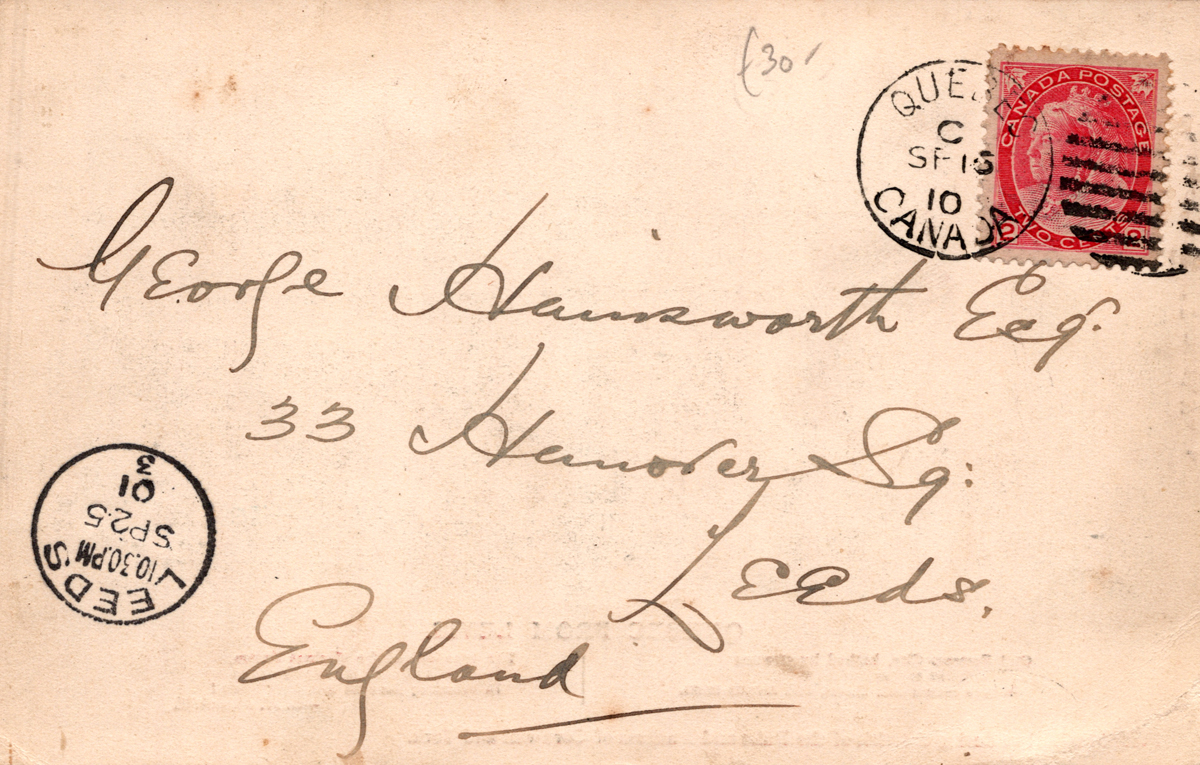 £30
QUEBEC
C
SP 16
10
CANADA
CANADA POSTAGE
TWO CENTS
2 2
George Hainsworth Esq.
33 Hanover Sq:
Leeds.
England
LEEDS
10.30.PM
SP25
01
3